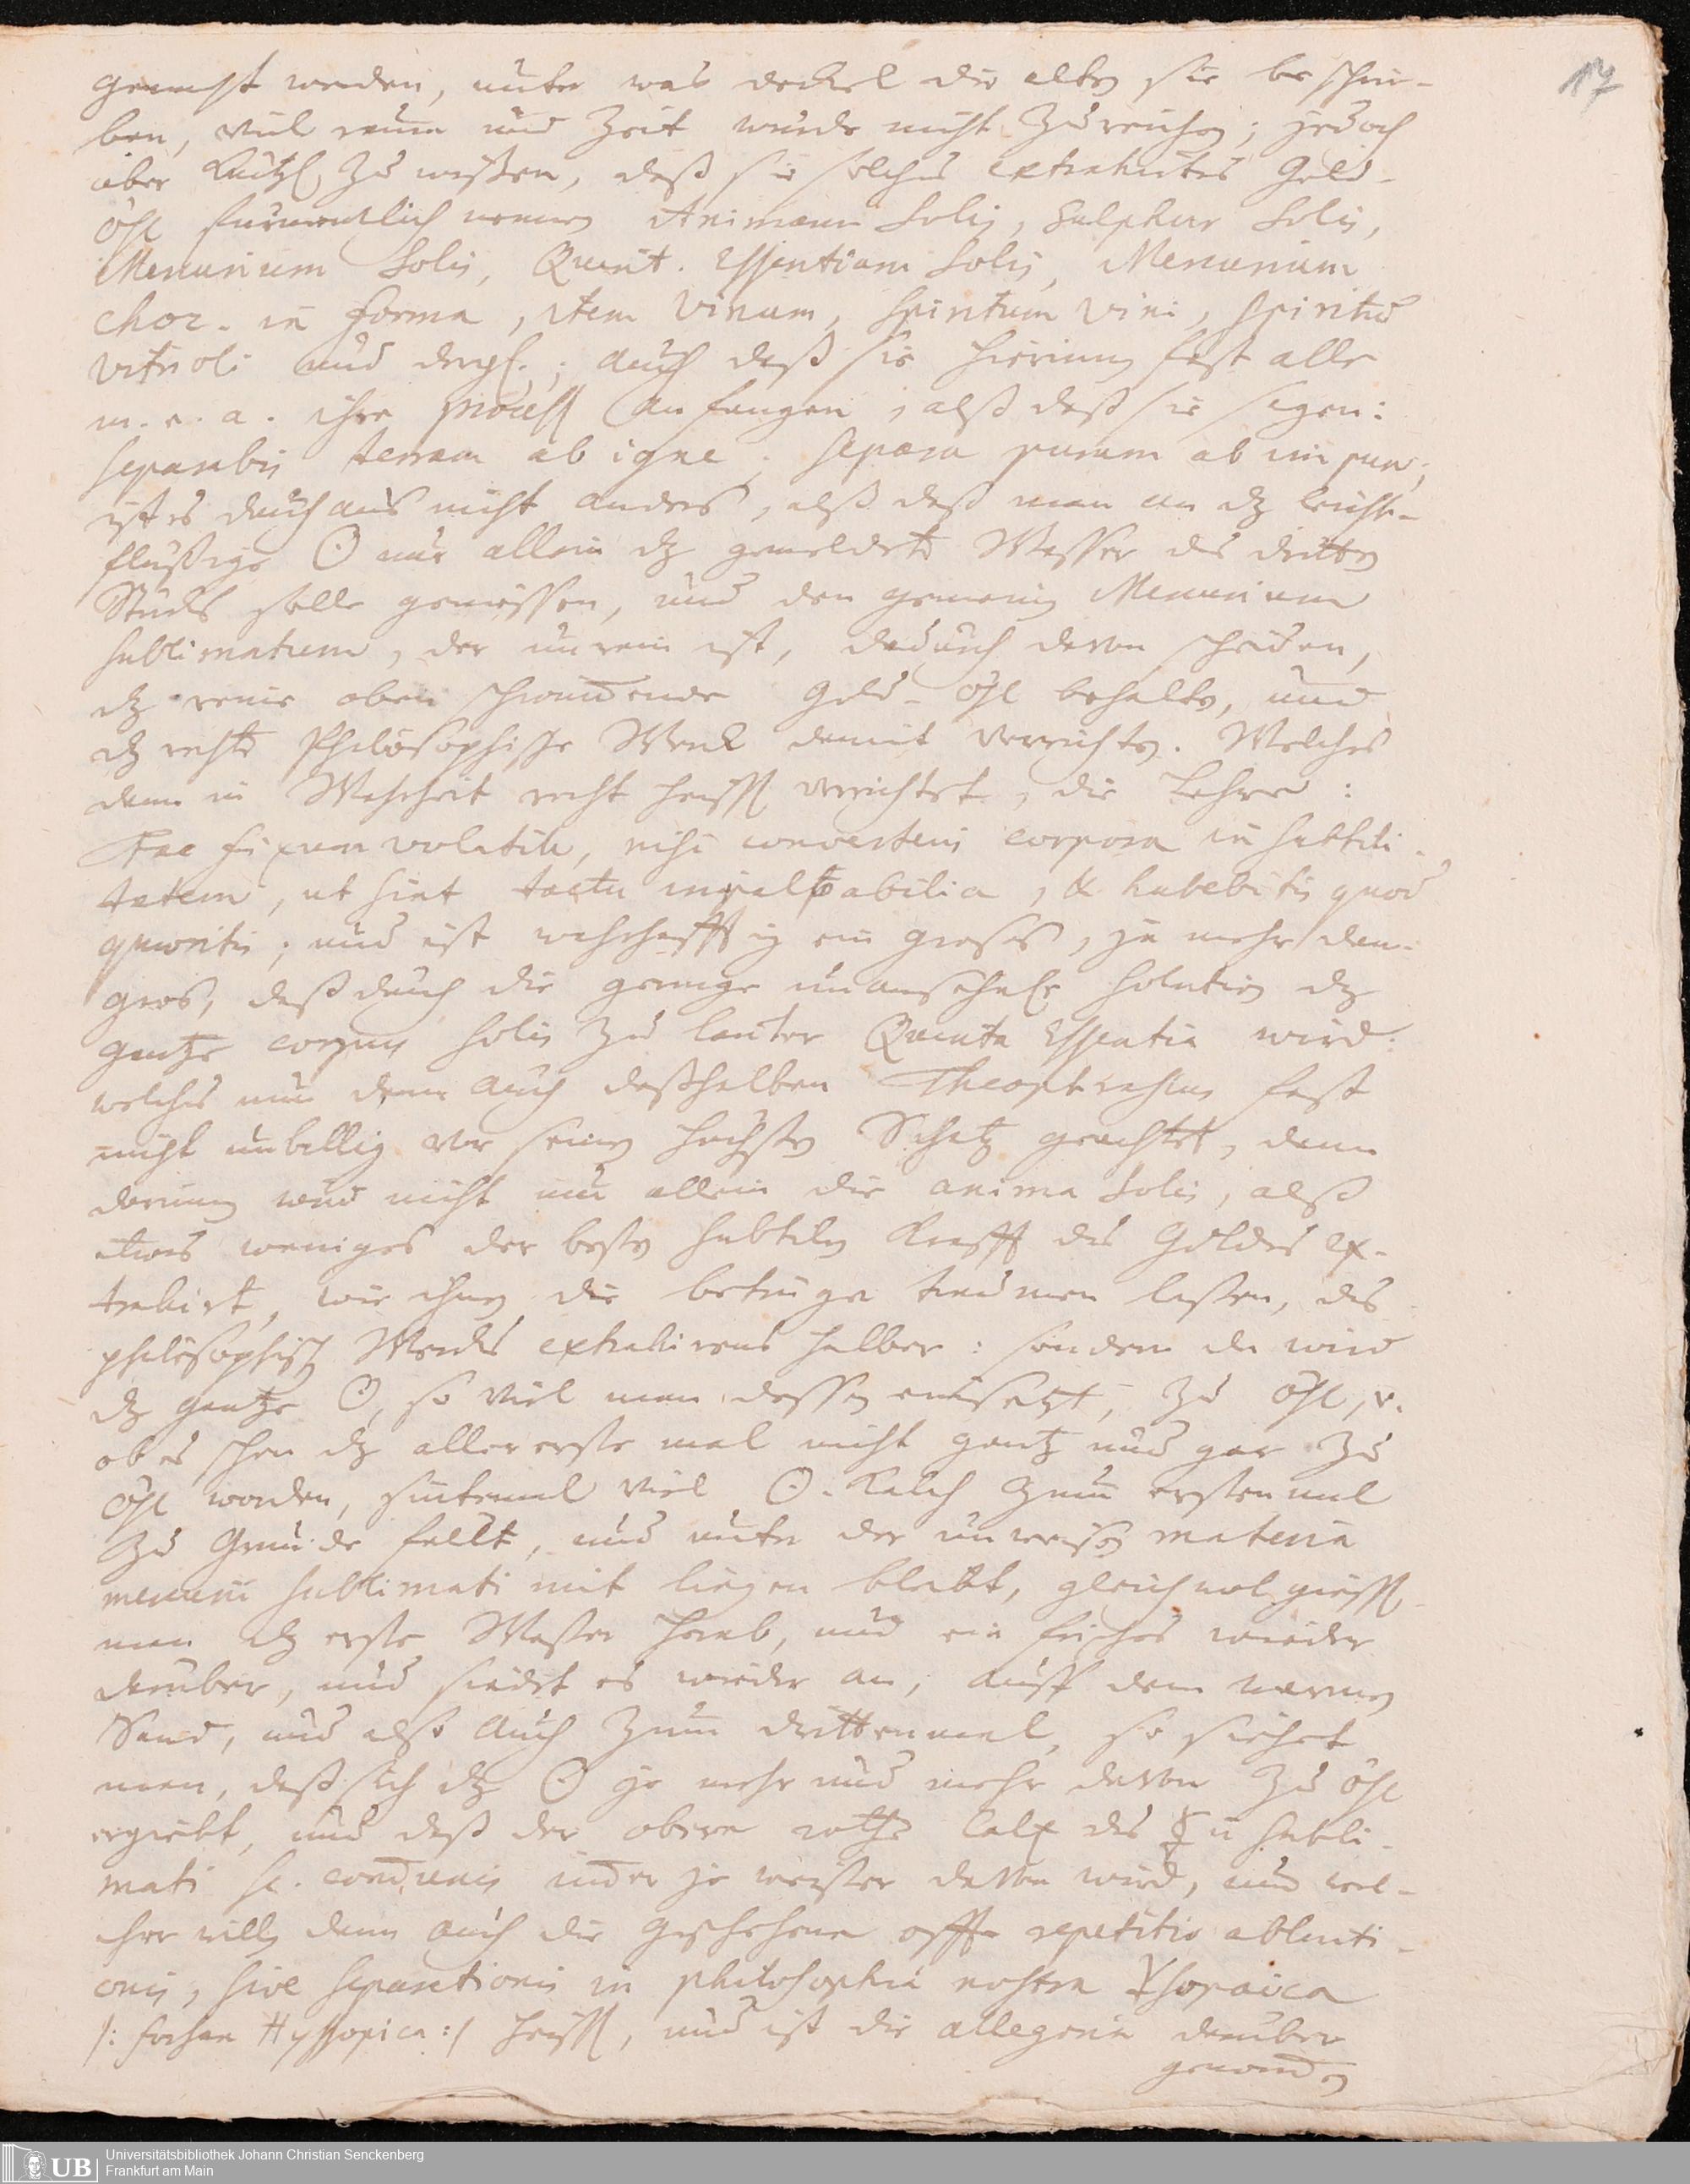 17
gemacht werden, unter was deckel die alten sie beschrie-
ben, viel raum und Zeit wurde nicht Zureichen; jedoch
aber Kurtzl. Zu wissen, daß sie solches extrahirtes Gold-
öhl furnemlich nennen Animam Solis, Sulphur Solis,
Mercurium Solis, Quint. Essentiam Solis, Mercurium
in forma, item Vinum, Spiritum Vini, Spiritu
Vitrioli und dergl.; auch daß sie hierinn fast alle
m. e. a. ihre process anfangen, alß daß sie sagen:
separabis terram ab igne; separa purum ab impuro,
ist es durchaus nicht anders, alß daß man an dz leicht-
flüßige ☉ nur allein dz gemeldete Wasser des dritten
Stucks solle giessen, und den gemeinen Mercurium
sublimatum, der unrein ist, dadurch davon scheiden,
dz reine oben schwimmende Gold-öhl behalten, und
dz rechte Philosophische Werck damit verrichten. Welches
dann in Wahrheit recht heisst verrichtet, die Lehre:
Fac fixum volatile, nisi convertetis corpora in subtili-
tatem, ut sint tactu impalpabilia, & habebitis quod
quaeritis; und ist wahrhafftig ein grosses, ja mehr dan
gros, daß durch die geringe unansehnle Solution dz
gantze corpus Solis Zu lauter Quinta Essentia wird.
welches nun dann auch deßhalben Theophrastus fast
nicht unbillig vor seinen höchsten Schatz geachtet, dann
darinn wird nicht nur allein die anima Solis, alß
etwas weniges der besten subtilen Krafft des Goldes ex-
trahirt, wie ihnen die betruger traumen lassen, des
philosophisch Wercks extrahirens halber: sondern da wird
dz gantze ☉, so viel man dessen einsetzt, Zu öhl, v.
ob es schon dz allererste mal nicht gantz und gar Zu
öhl worden, sintemal viel ☉-Kalch Zum erstenmal
Zu Grunde fallt, und unter der unreinen materia
mercurii sublimati mit liegen bleibt, gleichwol giesst
man dz erste Wasser herab, und ein frisches wieder
daruber, und siedet es wieder an, auff dem warmen
Sand, und also auch Zum drittenmal, so siehet
man, daß sich dz ☉ je mehr und mehr davon Zu öhl
ergiebt, und daß der obere rothe Calx des ☿ii subli-
mati sc. immer je weisser davon wird, und wel-
cher will, dann auch die geschehene offte repetitio abluti-
onis, sive separationis in philosophia nostra Ysopaica
/: forsan Hyssopica :/ heisst, und ist die allegoria daruber
genommen
Universitätsbibliothek Johann Christian Senckenberg
Frankfurt am Main
UB